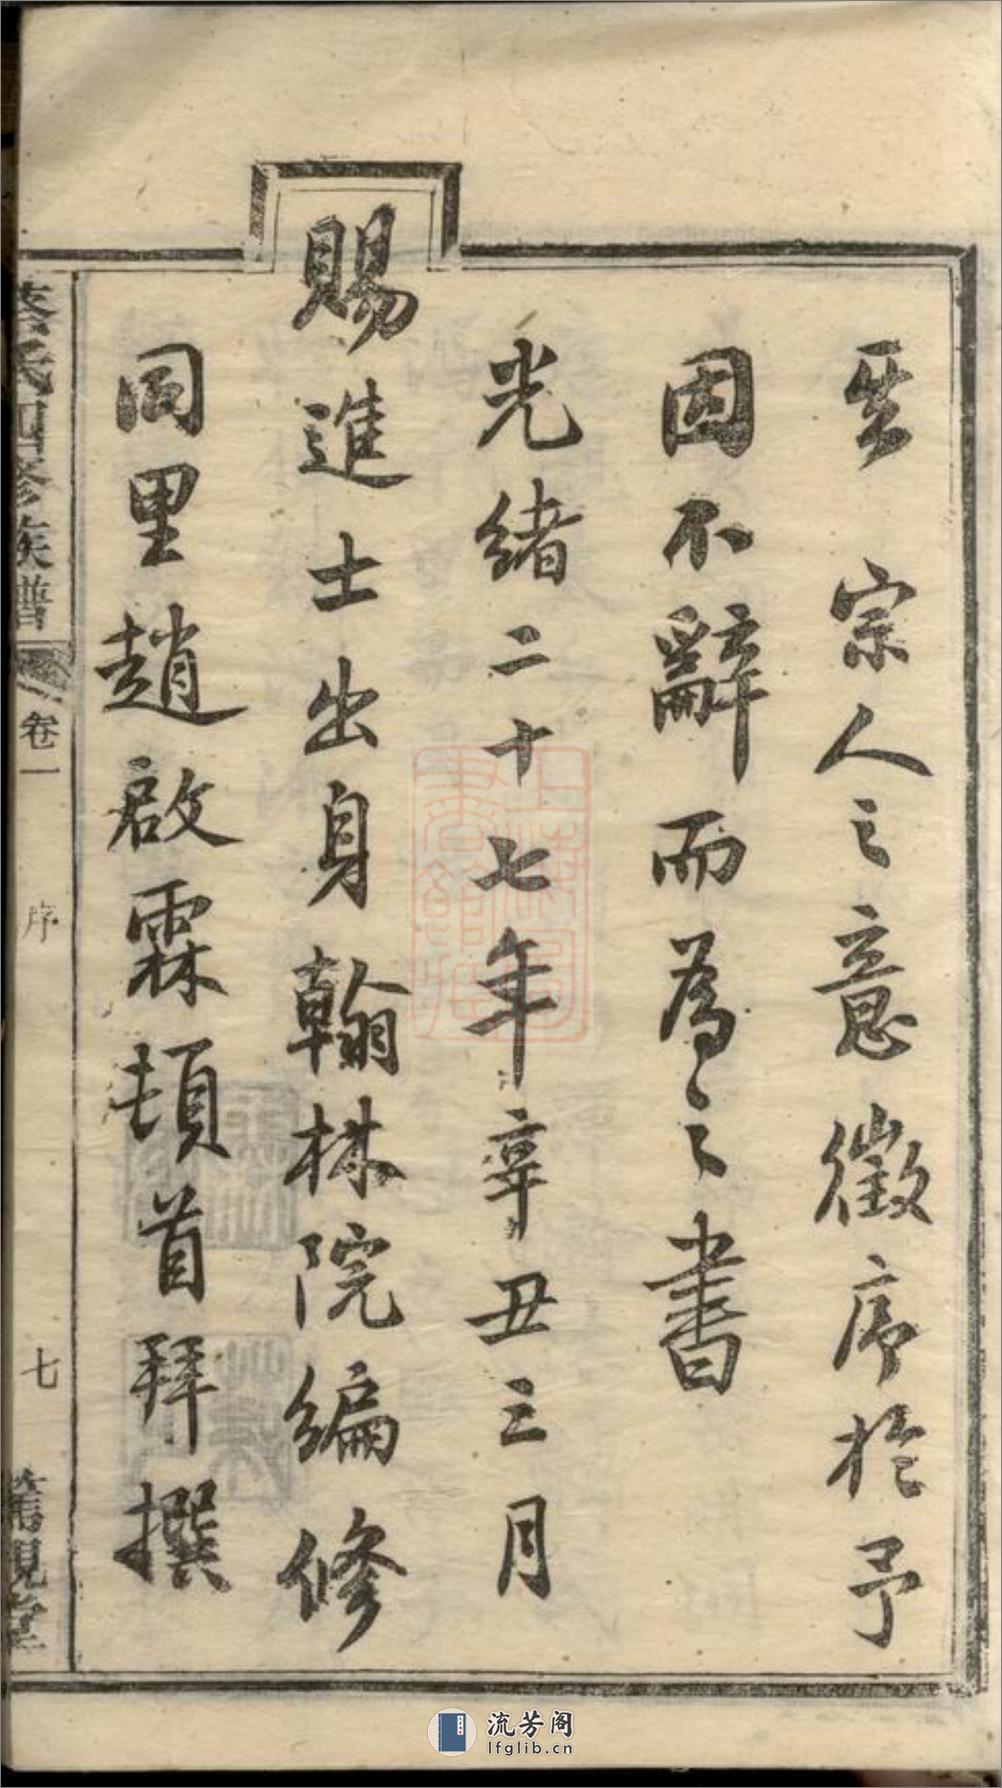 其 宗人之意徵序於予
因不辭而為之書
光緒二十七年辛丑三月
賜進士出身翰林院編修
同里趙啟霖頓首拜撰
氏四修族譜
卷一
序
七
親堂
上海圖書館藏
流芳阁
lfglib.cn